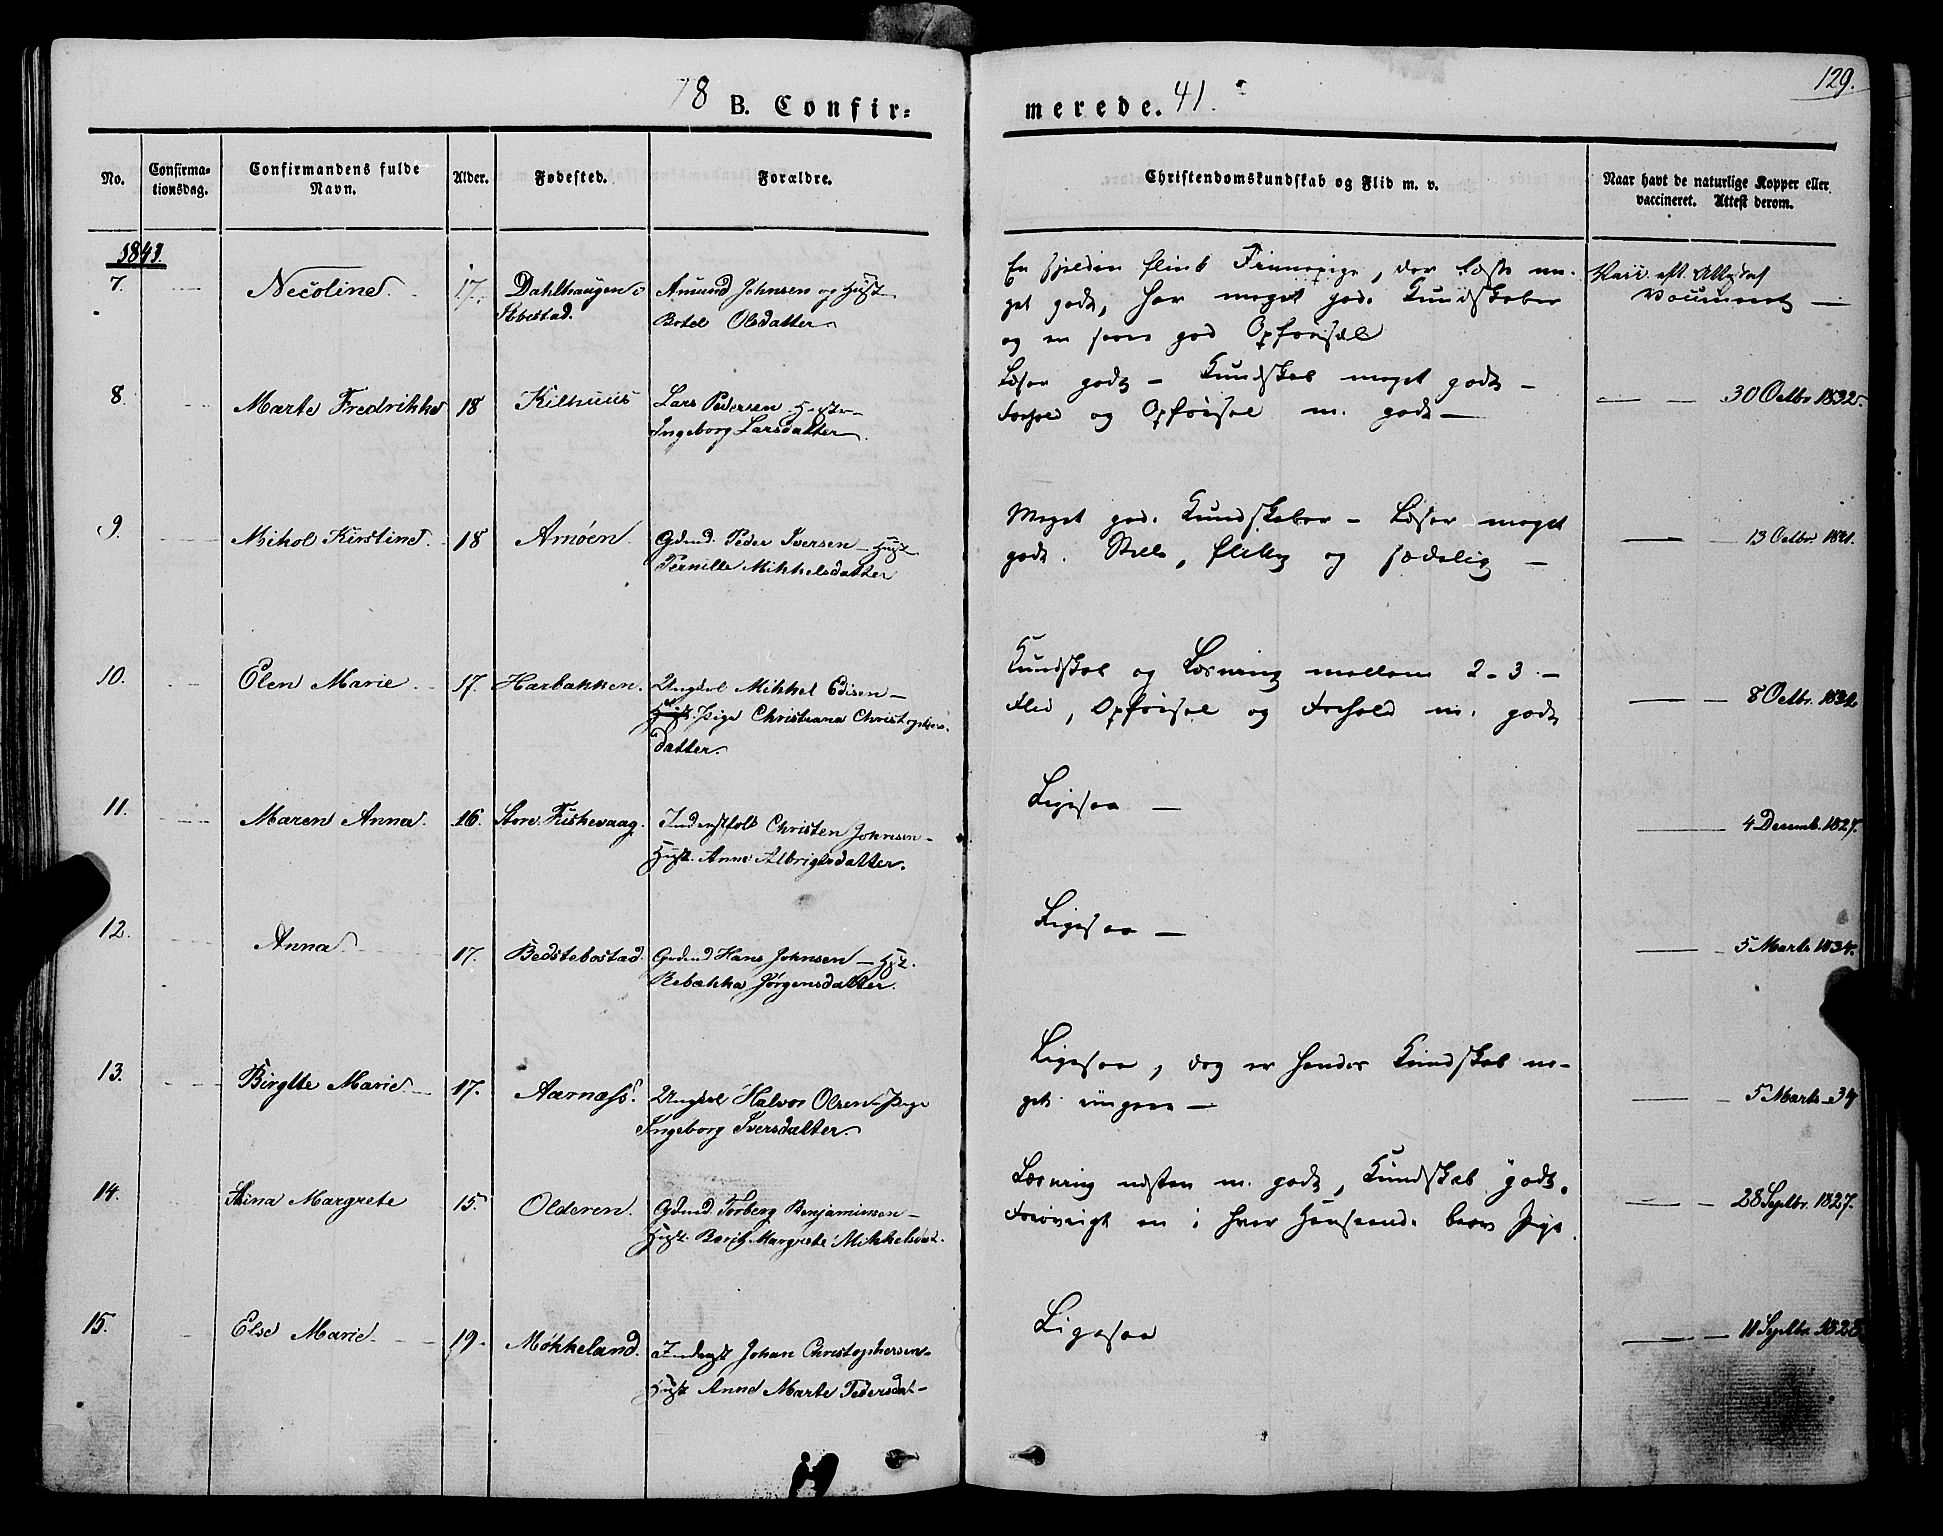 129.
18 B. Confirmerede. 41.
No. Confirmationsdag. Confirmandens fulde Navn. Alder. Fødested. Forældre. Christendomskundskab og Flid m. v. Naar havt de naturlige Kopper eller vaccineret. Attest derom.
1841.
7. Necoline 17. Dahlhaugen i Ibbestad.
Amund Johnsen og Hust.
Botel Olsdatter
En sjelden flink Finnepige, der læste me-
get godt, har meget gode Kundskaber
og en især god Opførsel
Vacc. eft.
8. Marte Fredrikke 18 Kilhuus
Lars Pedersen Hustr.
Ingeborg Larsdatter
Læser godt – Kundskab meget godt –
Forhold og Opførsel m. godt –
— — 30 Octbr 1832.
9. Mikol Kirstine. 18 Arnøen.
Gdmd. Peder Iversen – Hust.
Pernille Mikkelsdatter
Meget gode Kundskaber – Læser meget
godt. Stille, flittig og sædelig –
— – 13 Octbr.
10. Elen Marie 17. Harbakken.
Ungkel Mikkel Edisen –
Pige Christiana Christophers-
datter.
Kundskab og Læsning mellem 2-3 –
Flid, Opførsel og Forhold m. godt
— — 8 Octbr.
11. Maren Anna. 16. Store Fiskevaag.
Inderstfolk Christen Johnsen –
Hust. Anne Albrigtsdatter.
Ligesaa —
— 4 Decemb. 1827.
12. Anna 17. Bedstebostad.
Gdmd Hans Johnsen – Hust.
Rebækka Jørgensdatter.
Ligesaa —
— — 5 Marts 1834.
13. Birgitte Marie 17. Aarnæss.
Ungkel Halvor Olsen – Pige
Ingeborg Iversdatter.
Ligesaa, dog er hendes Kundskab no-
get ringere —
— — 5 Marts – 34
14. Stina Margrete 15. Olderen.
Gdmd. Torberg Benjaminsen –
Hust. Berit Margrete Mikkelsdat.
Læsning næsten m. godt, Kundskab godt.
Forøvrigt en i hver Henseende brav Pige.
— — 28 Septbr. 1827.
15. Else Marie 19. Møkkeland.
Inderst Johan Christophersen –
Hust. Anne Marte Pedersdat –
Ligesaa
— — 11 Septbr. 1828